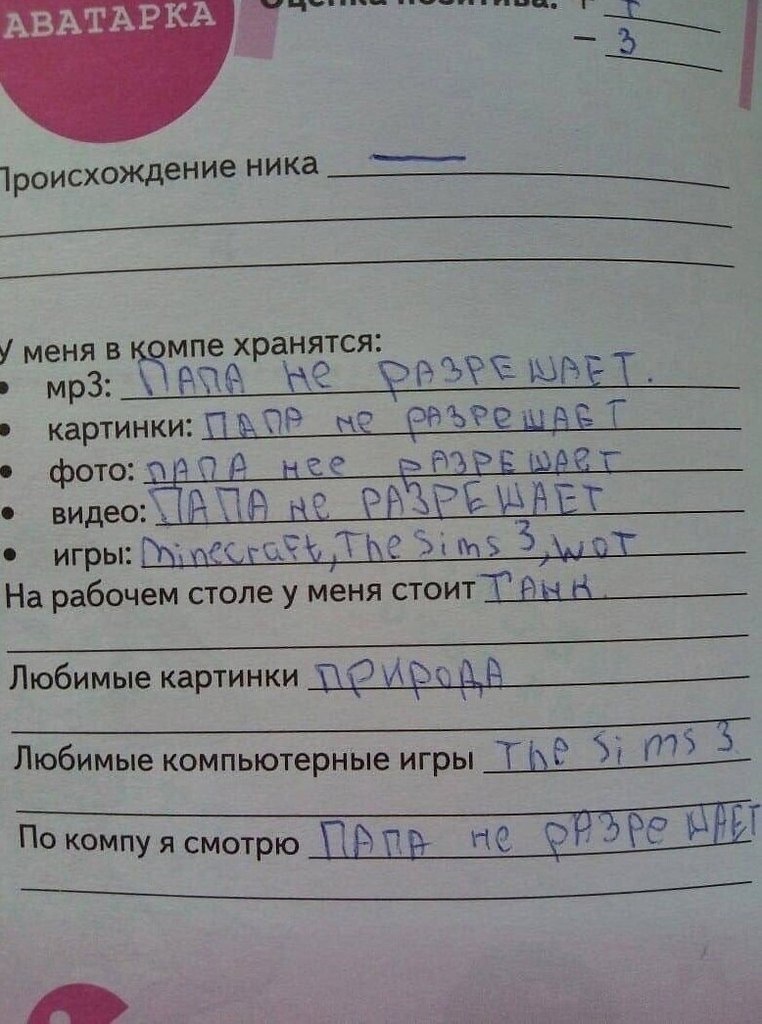 АВАТАРКА
Оценка позитива: +
− 3
Происхождение ника —
У меня в компе хранятся:
• mp3: ПАПА не РАЗРЕШАЕТ.
• картинки: ПАПА не РАЗРЕШАЕТ
• фото: ПАПА нее РАЗРЕШАЕТ
• видео: ПАПА не РАЗРЕШАЕТ
• игры: Minecraft, The Sims 3, WOT
На рабочем столе у меня стоит ТАНК.
Любимые картинки ПРИРОДА
Любимые компьютерные игры The Sims 3
По компу я смотрю ПАПА не РАЗРЕШАЕТ